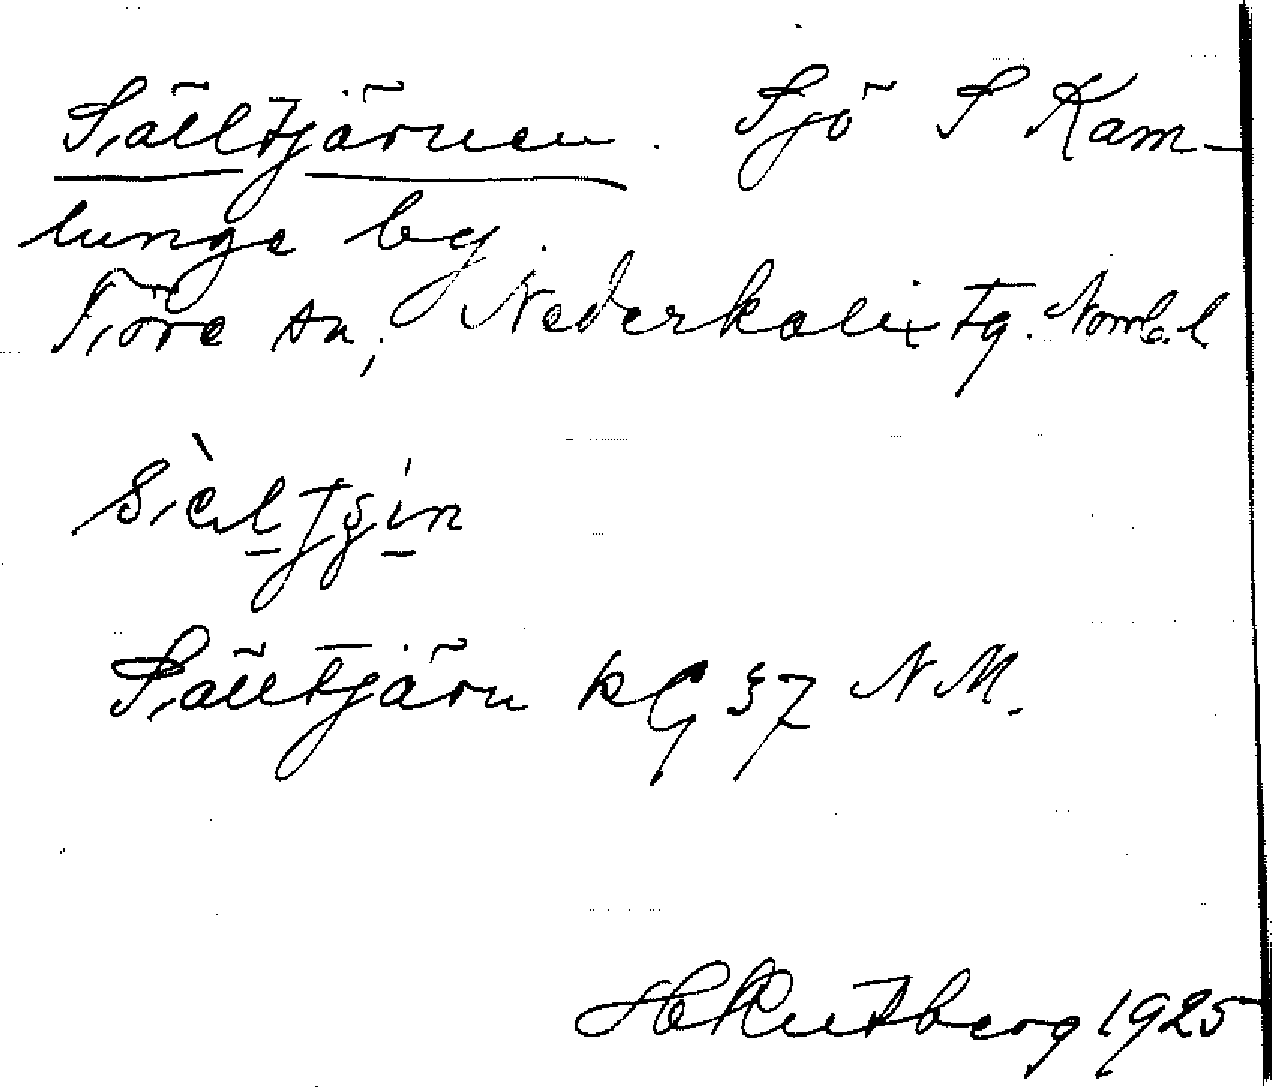 Sältjärnen. Sjö S Kam-
lunge by
Töre sn, Nederkalix tg. Nombl
Sältjärn kG 37 NM.
H Rutberg 1925